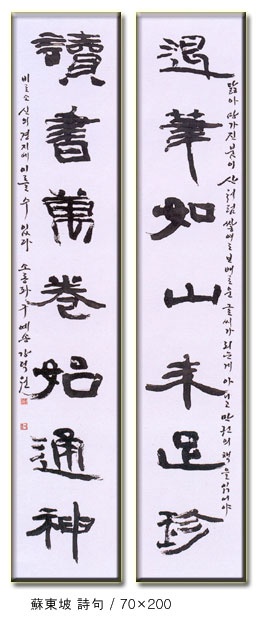 닳아 망가진 붓이 산처럼 쌓여도 보배로운 글씨가 되는게 아니고 만권의 책을 읽어야
退筆如山未足珍
讀書萬卷始通神
비로소 신의 경지에 이를 수 있다 소동파 구 예송 강덕원
蘇東坡 詩句 / 70×200